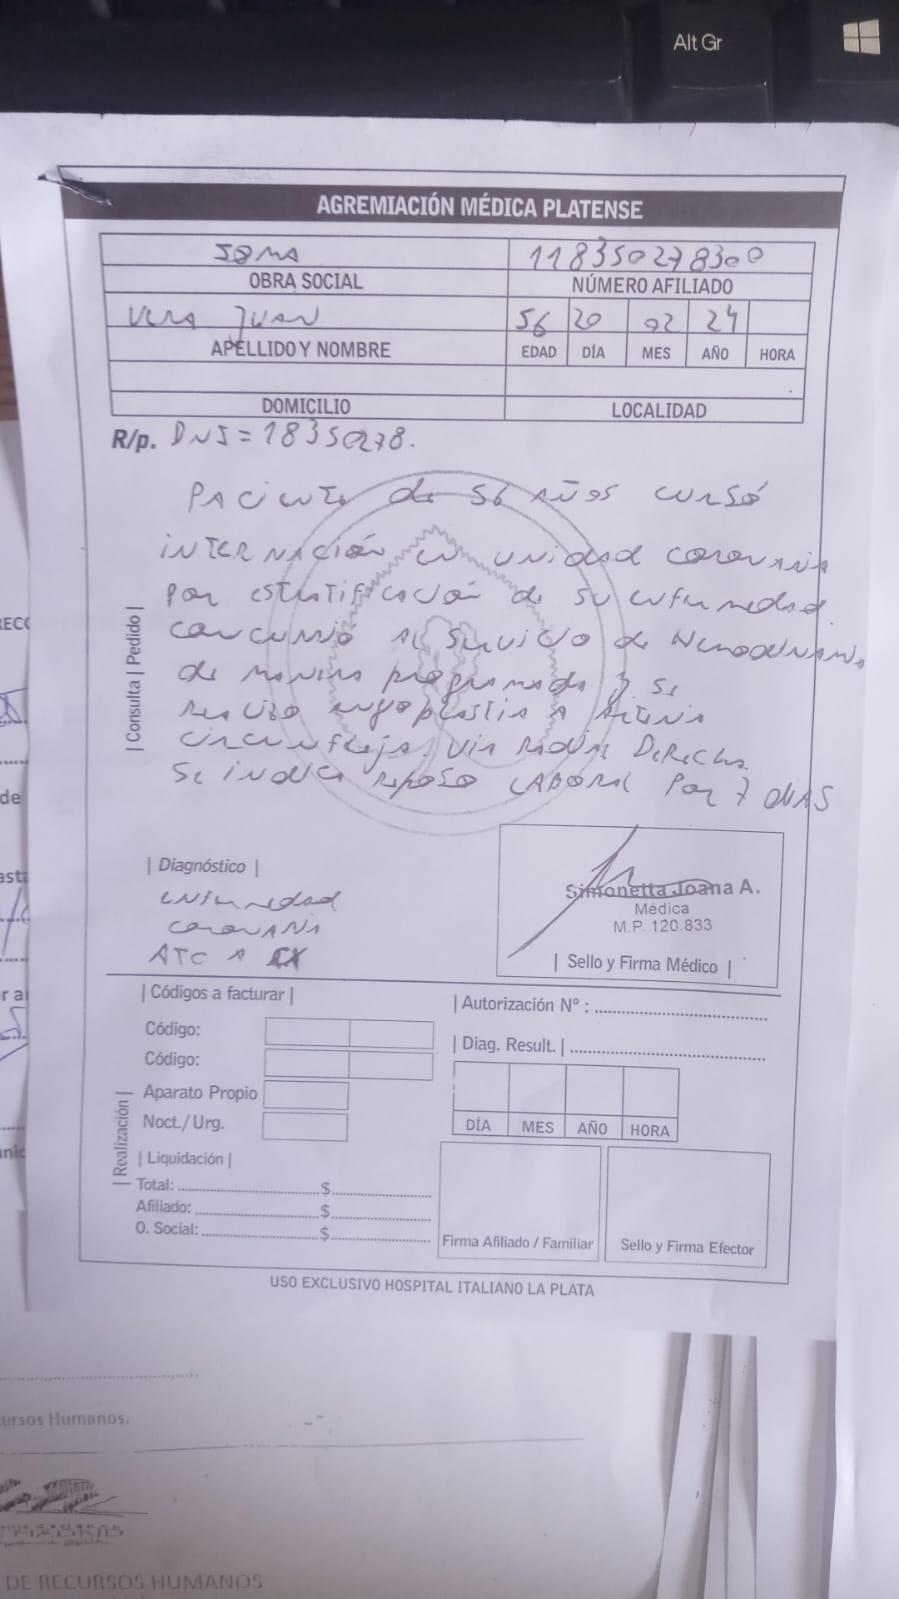 Alt Gr
AGREMIACIÓN MÉDICA PLATENSE
IOMA 118350278300
OBRA SOCIAL NÚMERO AFILIADO
VERA JUAN 56 20 02 24
APELLIDO Y NOMBRE EDAD DÍA MES AÑO HORA
DOMICILIO LOCALIDAD
R/p. DNI = 18350278.
PACIENTE de 56 AÑOS CURSÓ
INTERNACIÓN EN UNIDAD CORONARIA
POR ESTRATIFICACIÓN de SU ENFERMEDAD.
CONCURRIÓ AL SERVICIO de HEMODINAMIA
de MANERA PROGRAMADA y SE
REALIZO ANGIOPLASTIA A ARTERIA
CIRCUNFLEJA. VIA RADIAL DERECHA.
SE INDICA REPOSO LABORAL POR 7 DIAS
| Consulta | Pedido |
| Diagnóstico |
ENFERMEDAD
CORONARIA
ATC A CX
Simonetta Joana A.
Médica
M.P. 120.833
| Sello y Firma Médico |
| Códigos a facturar |
| Autorización Nº :
Código:
| Diag. Result. |
Código:
Aparato Propio
Noct./ Urg.
DÍA MES AÑO HORA
| Realización |
| Liquidación |
Total: $
Afiliado: $
O. Social: $
Firma Afiliado / Familiar Sello y Firma Efector
USO EXCLUSIVO HOSPITAL ITALIANO LA PLATA
ursos Humanos.
DE RECURSOS HUMANOS